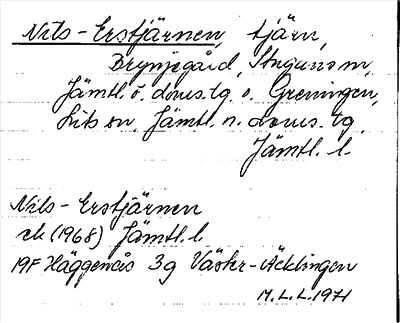 Nils-Erstjärnen, tjärn,
Brynjegård, Stuguns sn,
Jämtl. ö. doms.tg o. Greningen,
Lits sn, Jämtl. n. doms.tg,
Jämtl. l.
Nils-Erstjärnen
ek (1968) Jämtl. l.
19F Häggenås 3g Väster-Äcklingen
M.L.L. 1971